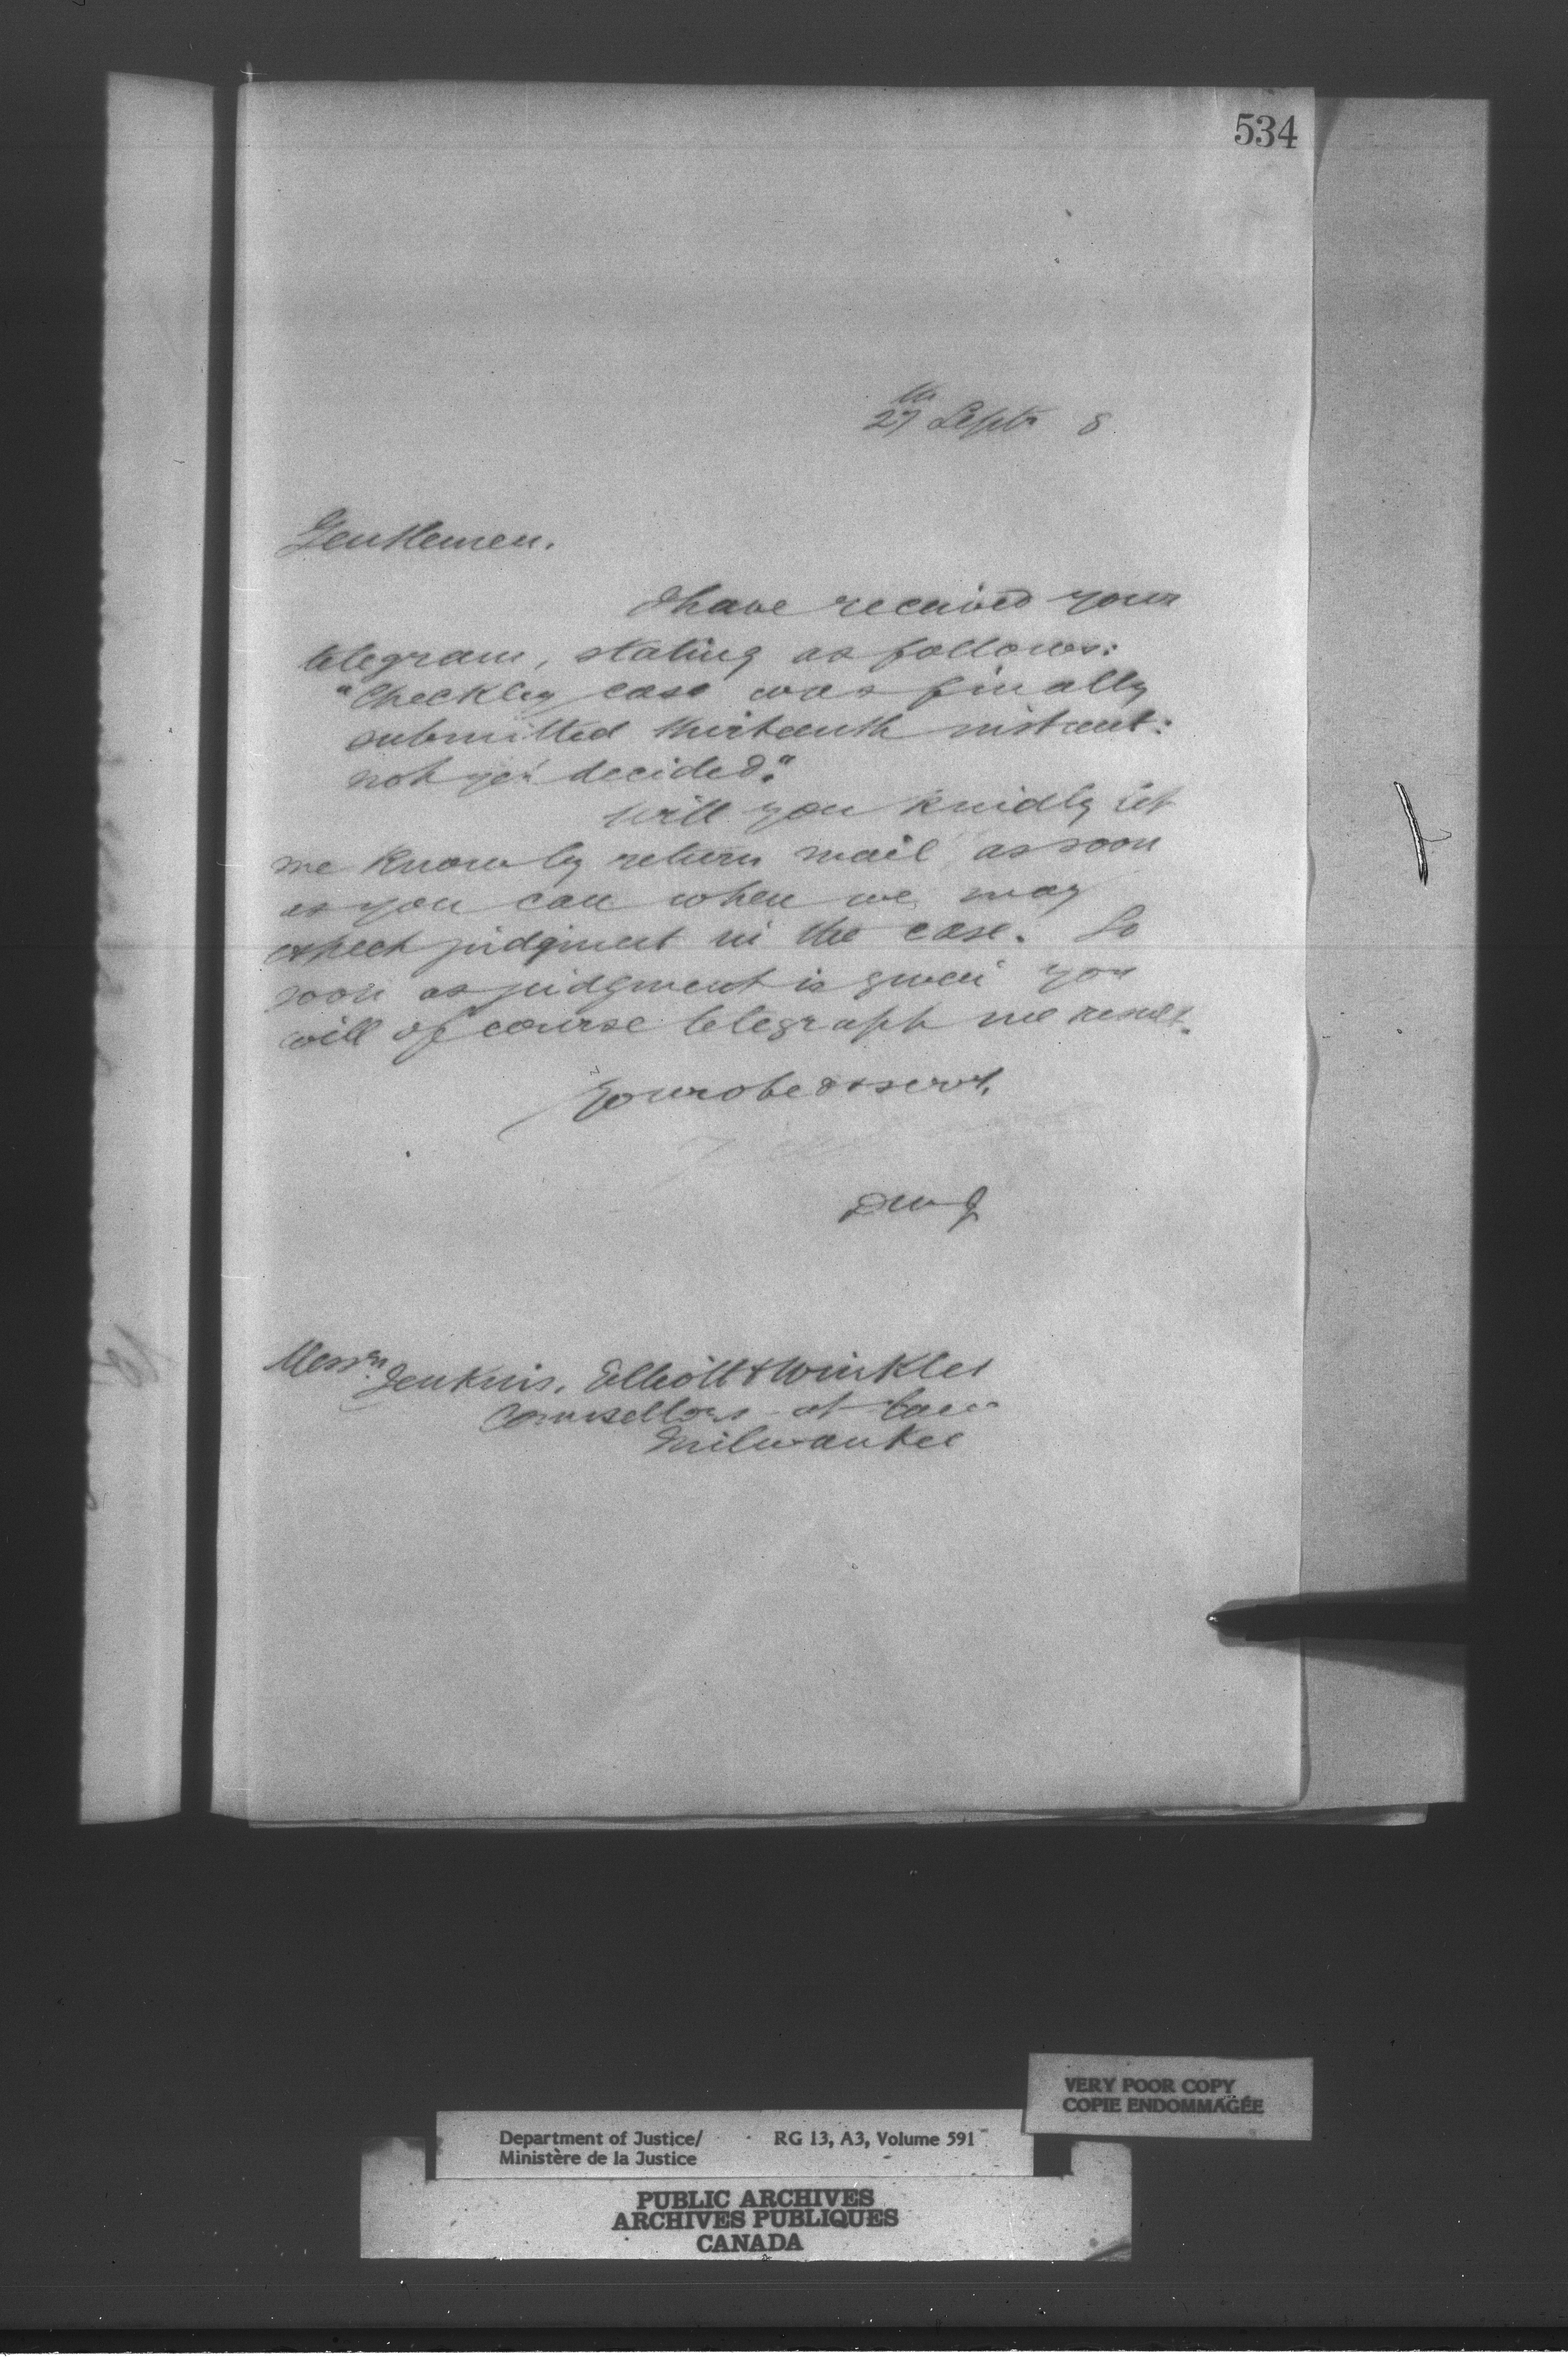 534
27th Septr 8
Gentlemen.
I have received your
telegram, stating as follows:
"Checkley case was finally
submitted thirteenth instant:
not yet decided."
Will you kindly let
me know by return mail as soon
as you can when we may
expect judgment in the case. So
soon as judgment is given you
will of course telegraph me result.
Your obedt servt.
Messrs. Jenkins, Elliott & Winkler
Counsellors at Law
Milwaukee
VERY POOR COPY
COPIE ENDOMMAGÉE
Department of Justice/ RG 13, A3, Volume 591
Ministère de la Justice
PUBLIC ARCHIVES
ARCHIVES PUBLIQUES
CANADA